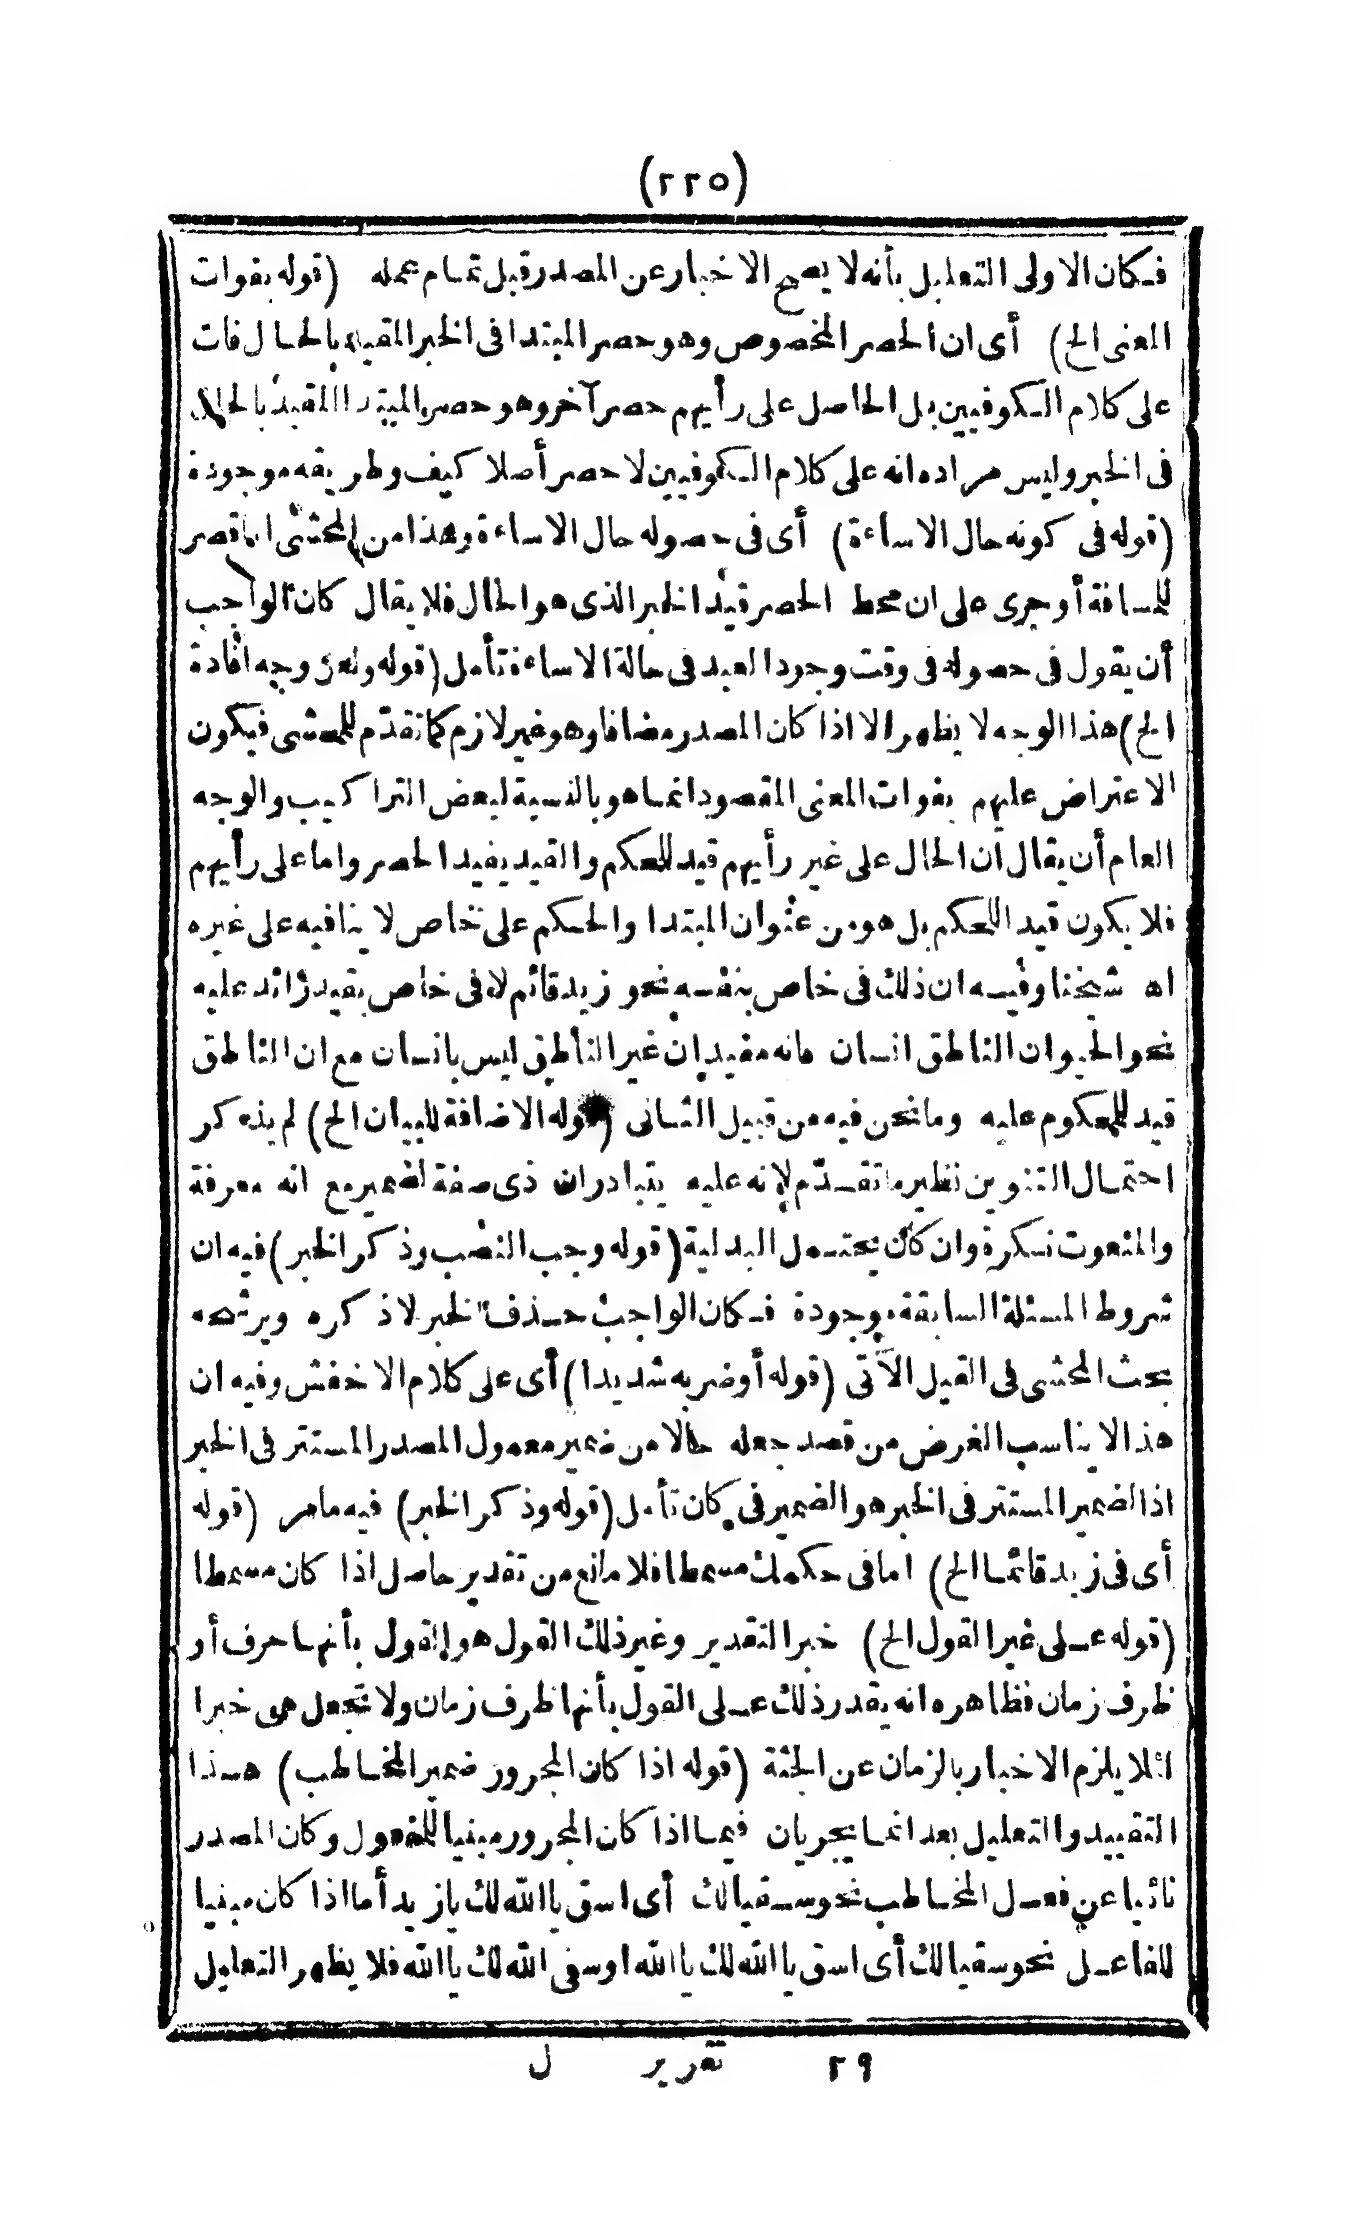 (٢٢٥)
فكان الاولى التعليل بأنه لا يصح الاخبار عن المصدر قبل تمام عمله (قوله بفوات
المعنى الخ) أى ان الحصر المخصوص وهو حصر المبتدا فى الخبر المقيد بالحال فات
على كلام الكوفيين بل الحاصل على رأيهم حصر آخر وهو حصر المبتدا المقيد بالحال
فى الخبر وليس مراده انه على كلام الكوفيين لا حصر أصلا كيف وطريقه موجودة
(قوله فى كونه حال الاساءة) أى فى حصوله حال الاساءة وهذا من المحشى اما قصر
للمسافة أو جرى على ان محط الحصر قيد الخبر الذى هو الحال فلا يقال كان الواجب
أن يقول فى حصوله فى وقت وجود العبد فى حالة الاساءة تأمل (قوله وله فى وجه افادة
الخ) هذا الوجه لا يظهر الا اذا كان المصدر مضافا وهو غير لازم كما تقدّم للمحشى فيكون
الاعتراض عليهم بفوات المعنى المقصود انما هو بالنسبة لبعض التراكيب والوجه
العام أن يقال ان الحال على غير رأيهم قيد للحكم والقيد يفيد الحصر واما على رأيهم
فلا يكون قيد اللحكم بل هو من عنوان المبتدا والحكم على خاص لا ينافيه على غيره
اه شيخنا وفيه ان ذلك فى خاص بنفسه نحو زيد قائم لا فى خاص بقيد زائد عليه
نحو الحيوان الناطق انسان فانه مفيد ان غير الناطق ليس بانسان مع ان الناطق
قيد للمحكوم عليه وما نحن فيه من قبيل الثانى (قوله الاضافة للبيان الخ) لم يذكر
احتمال التنوين نظير ما تقدّم لانه عليه يتبادر ان ذى صفة لضمير مع انه معرفة
والمنعوت نكرة وان كان يحتمل البدلية (قوله وجب النصب وذكر الخبر) فيه ان
شروط المسئلة السابقة موجودة فكان الواجب حذف الخبر لا ذكره ويرشحه
بحث المحشى فى القيل الآتى (قوله أو ضربه شديدا) أى على كلام الاخفش وفيه ان
هذا لا يناسب الغرض من قصد جعله حالا من ضمير معمول المصدر المستتر فى الخبر
اذا الضمير المستتر فى الخبر هو الضمير فى كان تأمل (قوله وذكر الخبر) فيه ما مر (قوله
أى فى زيد قائما الخ) اما فى حكمك مسمطا فلا مانع من تقدير حاصل اذا كان مسمطا
(قوله على غير القول الخ) خبر التقدير وغير ذلك القول هو القول بأنها حرف أو
ظرف زمان فظاهره انه يقدر ذلك على القول بأنها ظرف زمان ولا تجعل هى خبرا
لئلا يلزم الاخبار بالزمان عن الجثة (قوله اذا كان المجرور ضمير المخاطب) هذا
التقييد والتعليل بعد انما يجريان فيما اذا كان المجرور مبنيا للمفعول وكان المصدر
نائبا عن فعل المخاطب نحو سقيا لك أى اسق يا الله لك يا زيد أما اذا كان مبنيا
للفاعل نحو سقيا لك أى اسق يا الله لك يا الله او سقى الله لك يا الله فلا يظهر التعليل
٢٩ تقرير ل